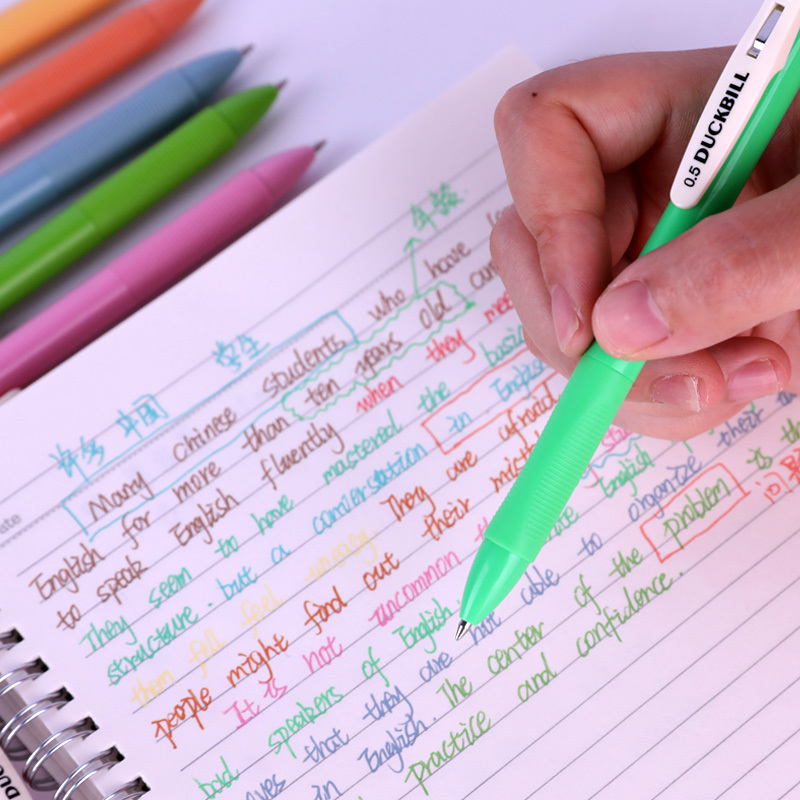 0.5 DUCKBILL
年龄
许多 中国 学生
Many Chinese students who have
English for more than ten years old
to speak English fluently when they
They seem to have mastered the basic
structure. but a conversation in English
them fell feel uneasy They are afraid
people might find out their
It is not uncommon
bad speakers of English
that they are not able to organize their
in English. The center of the problem is
practice and confidence.
问题
ate